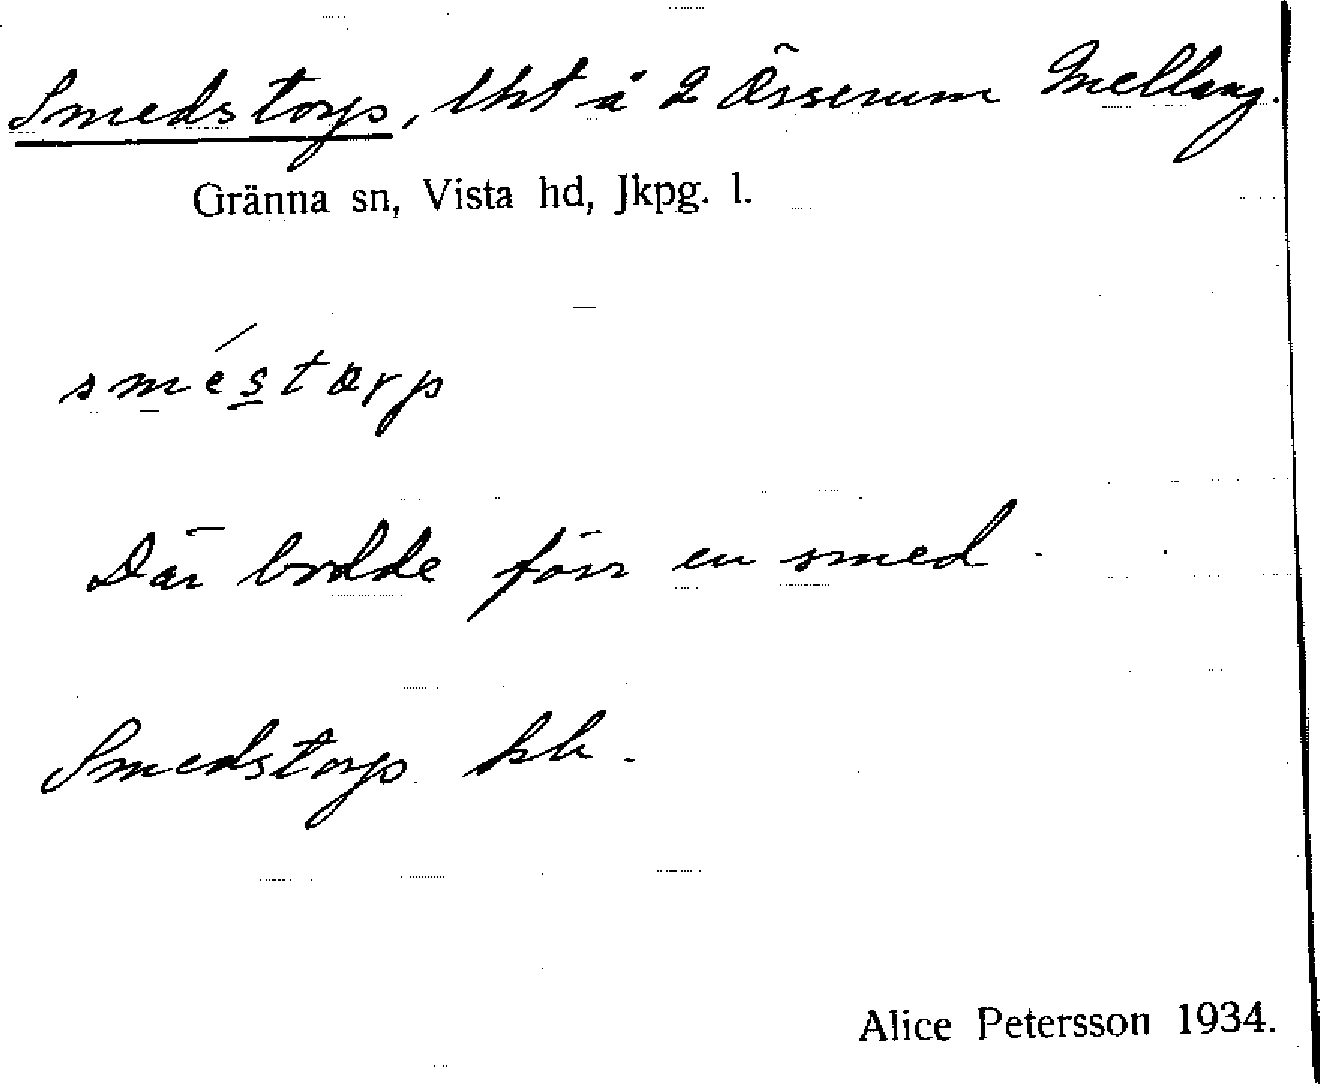 Smedstorp, lht å 2 Örserum Mellang.
Gränna sn, Vista hd, Jkpg. l.
sméstørp
Där bodde förr en smed.
Smedstorp kb.
Alice Petersson 1934.